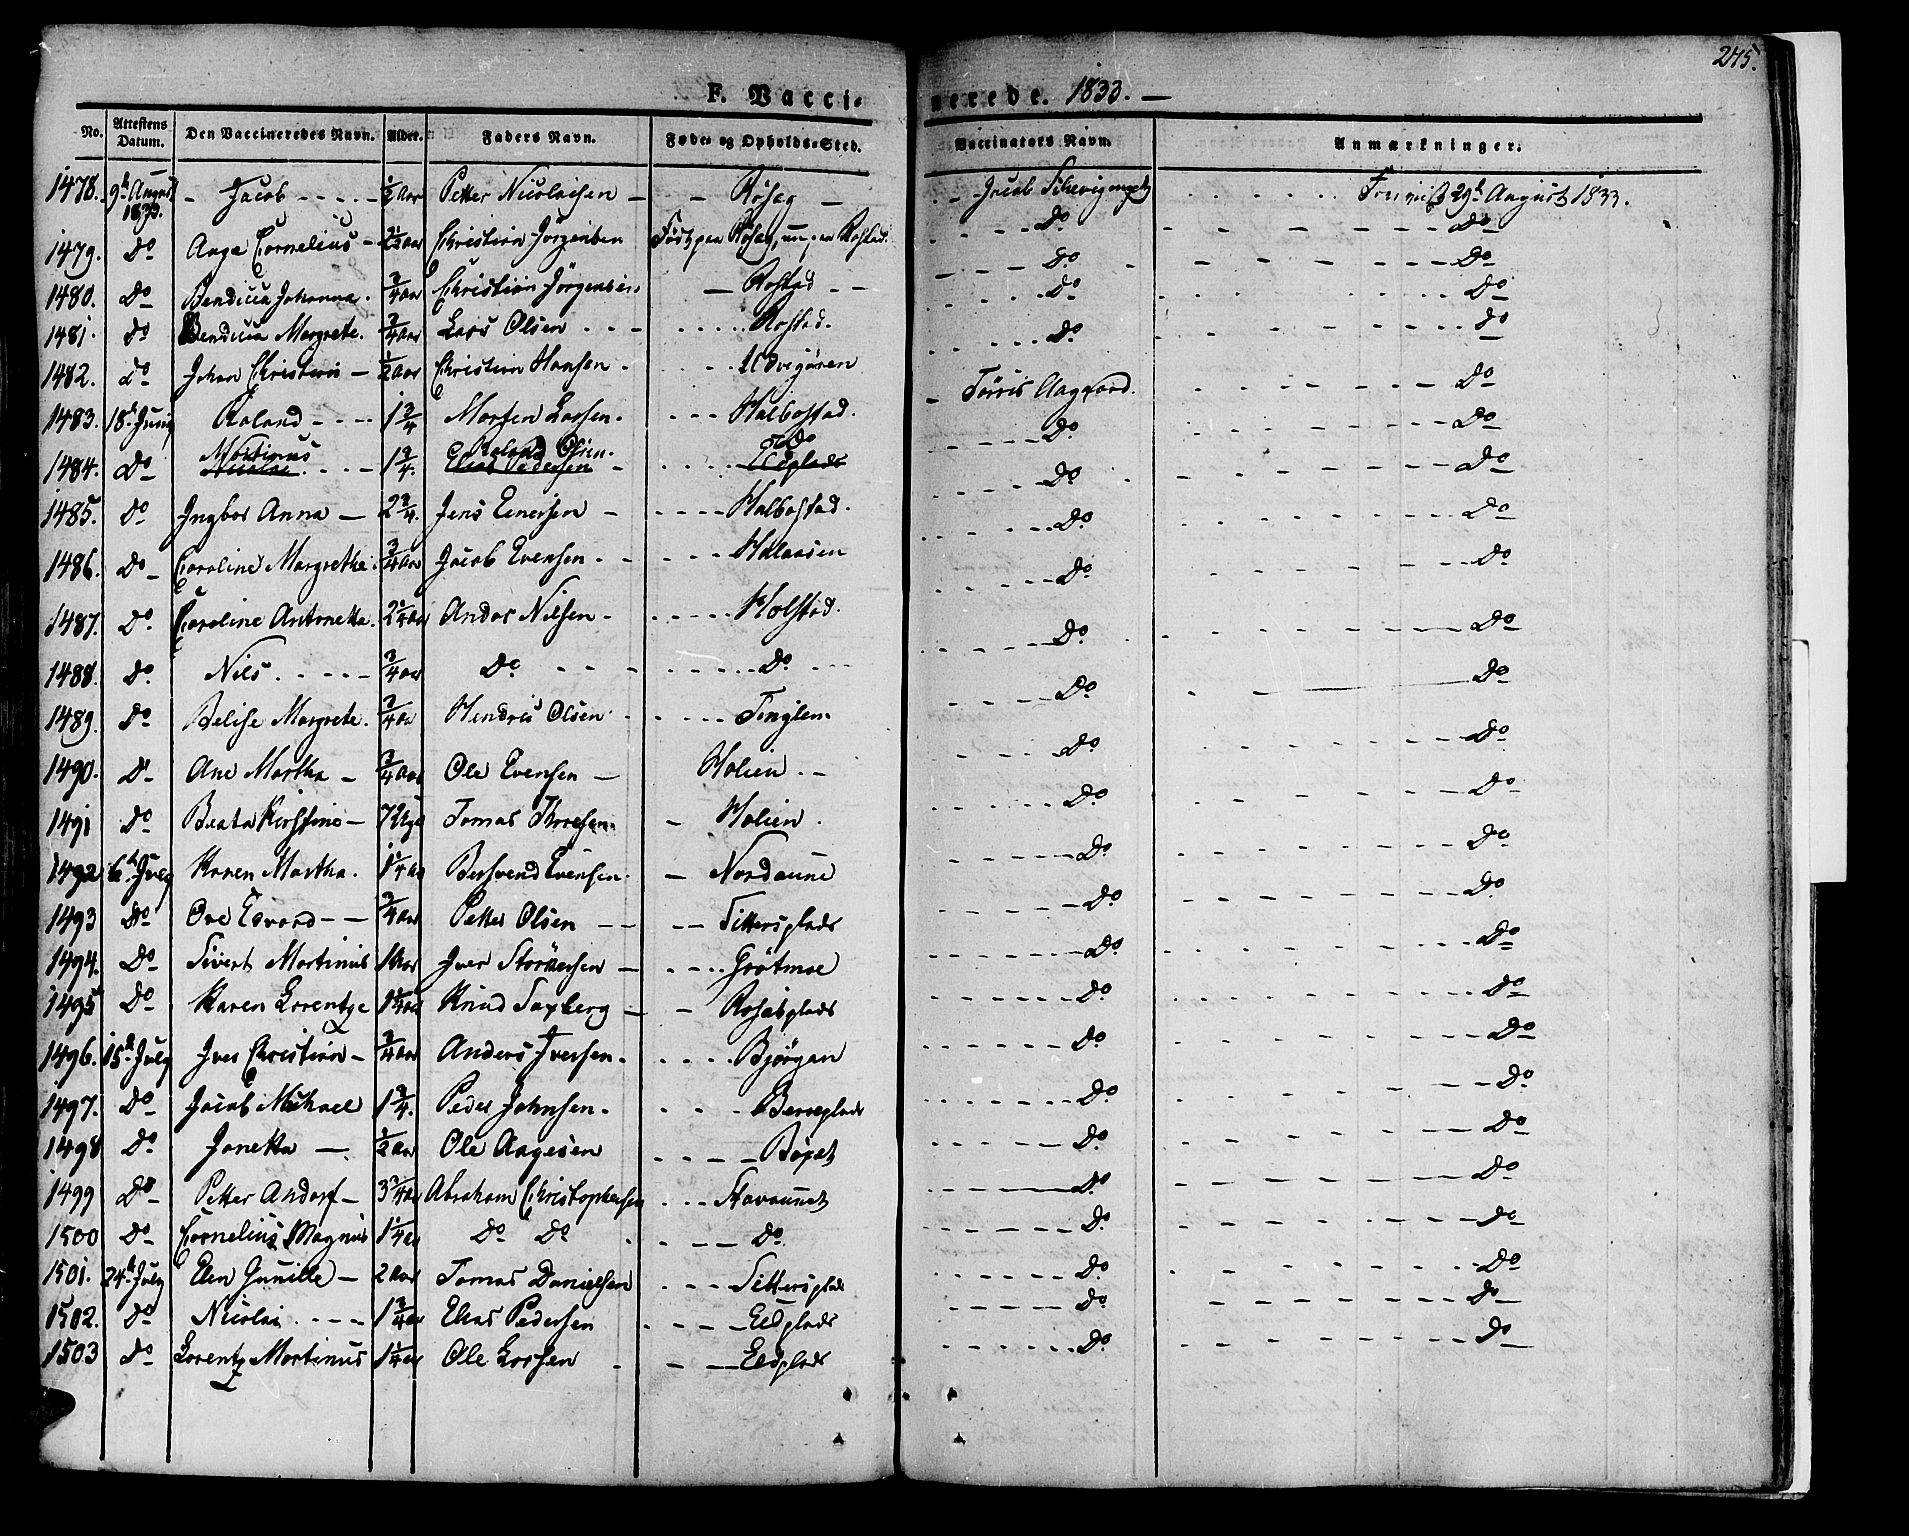 245.
F. Vaccinerede. 1833. —
No. | Attestens Datum. | Den Vaccineredes Navn. | Alder. | Faders Navn. | Føde- og Opholds-Sted. | Vaccinators Navn. | Anmærkninger.
1478. | 9de August 1833. | Jacob | 1/2 Aar | Petter Nicolaisen | Røseg | Jacob | 29de August 1833.
1479. | Do | Aage Cornelius | 2 1/2 aar | Christian Jörgensen | Födt paa Røseg, nu paa Rostad. | Do | Do
1480. | Do | Bendicta Johanna. | 3/4 aar | Christian Jörgensen | Rostad | Do | Do
1481. | Do | Bendicta Margrete. | 3/4 aar | Lars Olsen | Rostad. | Do | Do
1482. | Do | Johan Christian | 1/2 aar | Christian Hansen | Udvigåren | Do | Do
1483. | 18de Juny | Roland | 1 3/4 | Morten Larsen. | Halbostad. | Torris Aagaard. | Do
1484. | Do | Martinus Nicolai | 1 3/4. | Roland Olsen. Elias Pedersen | Do Eldplads | Do | Do
1485. | Do | Ingbor Anna | 2 3/4. | Jens Einersen | Halbostad. | Do | Do
1486. | Do | Caroline Margretha. | 3/4 aar | Jacob Evensen | Halaasen | Do | Do
1487. | Do. | Caroline Antonetta. | 2 1/4 aar | Andor Nilsen | Holstad. | Do | Do
1488. | Do. | Nils | 3/4 aar | Do | Do | Do | Do
1489. | Do | Belise Margrete. | 3/4 aar | Hendric Olsen | Tinglem | Do | Do
1490. | Do | Ane Martha | 3/4 Aar | Ole Evensen | Holien | Do | Do
1491 | Do | Beata Kirstine | 7 Uge | Tomas Thoresen. | Holien. | Do | Do
1492 | 6de July | Karen Martha. | 1 1/4 aar | Bersvend Evensen | Nordaune | Do. | Do
1493 | Do | Ove Edvard | 3/4 aar | Petter Olsen | Sittersplads | Do | Do
1494. | Do | Sivert Martinus | 1 Aar | Iver Störkersen | Grøtmoe | Do | Do
1495 | Do | Karen Lorentze | 1 1/4 aar | Knud Saxberg | Rosetplads | Do | Do
1496. | 15de July | Iver Christian | 3/4 aar | Anders Iversen. | Bjørgan | Do. | Do
1497. | Do | Jacob Michael | 1 3/4. | Peder Johnsen. | Bereplads | Do | Do
1498 | Do | Jonetta | 1/2 aar | Ole Aagesen | Bøxet | Do | Do
1499 | Do | Petter Andorf | 3 3/4 aar | Abraham Christophersen | Stavaunet | Do | Do
1500 | Do | Cornelius Magnus | 1 1/4 aar | Do Do | Do | Do. | Do
1501. | 24de July | Elen Gunille | 2 aar | Tomas Danielsen | Sittersplads | Do | Do
1502. | Do | Nicolai | 1 3/4 aar | Elias Pedersen | Eldplads | Do | Do
1503 | Do | Lorentz Martinus | 1 1/4 aar | Ole Larsen | Eldplads | Do. | Do